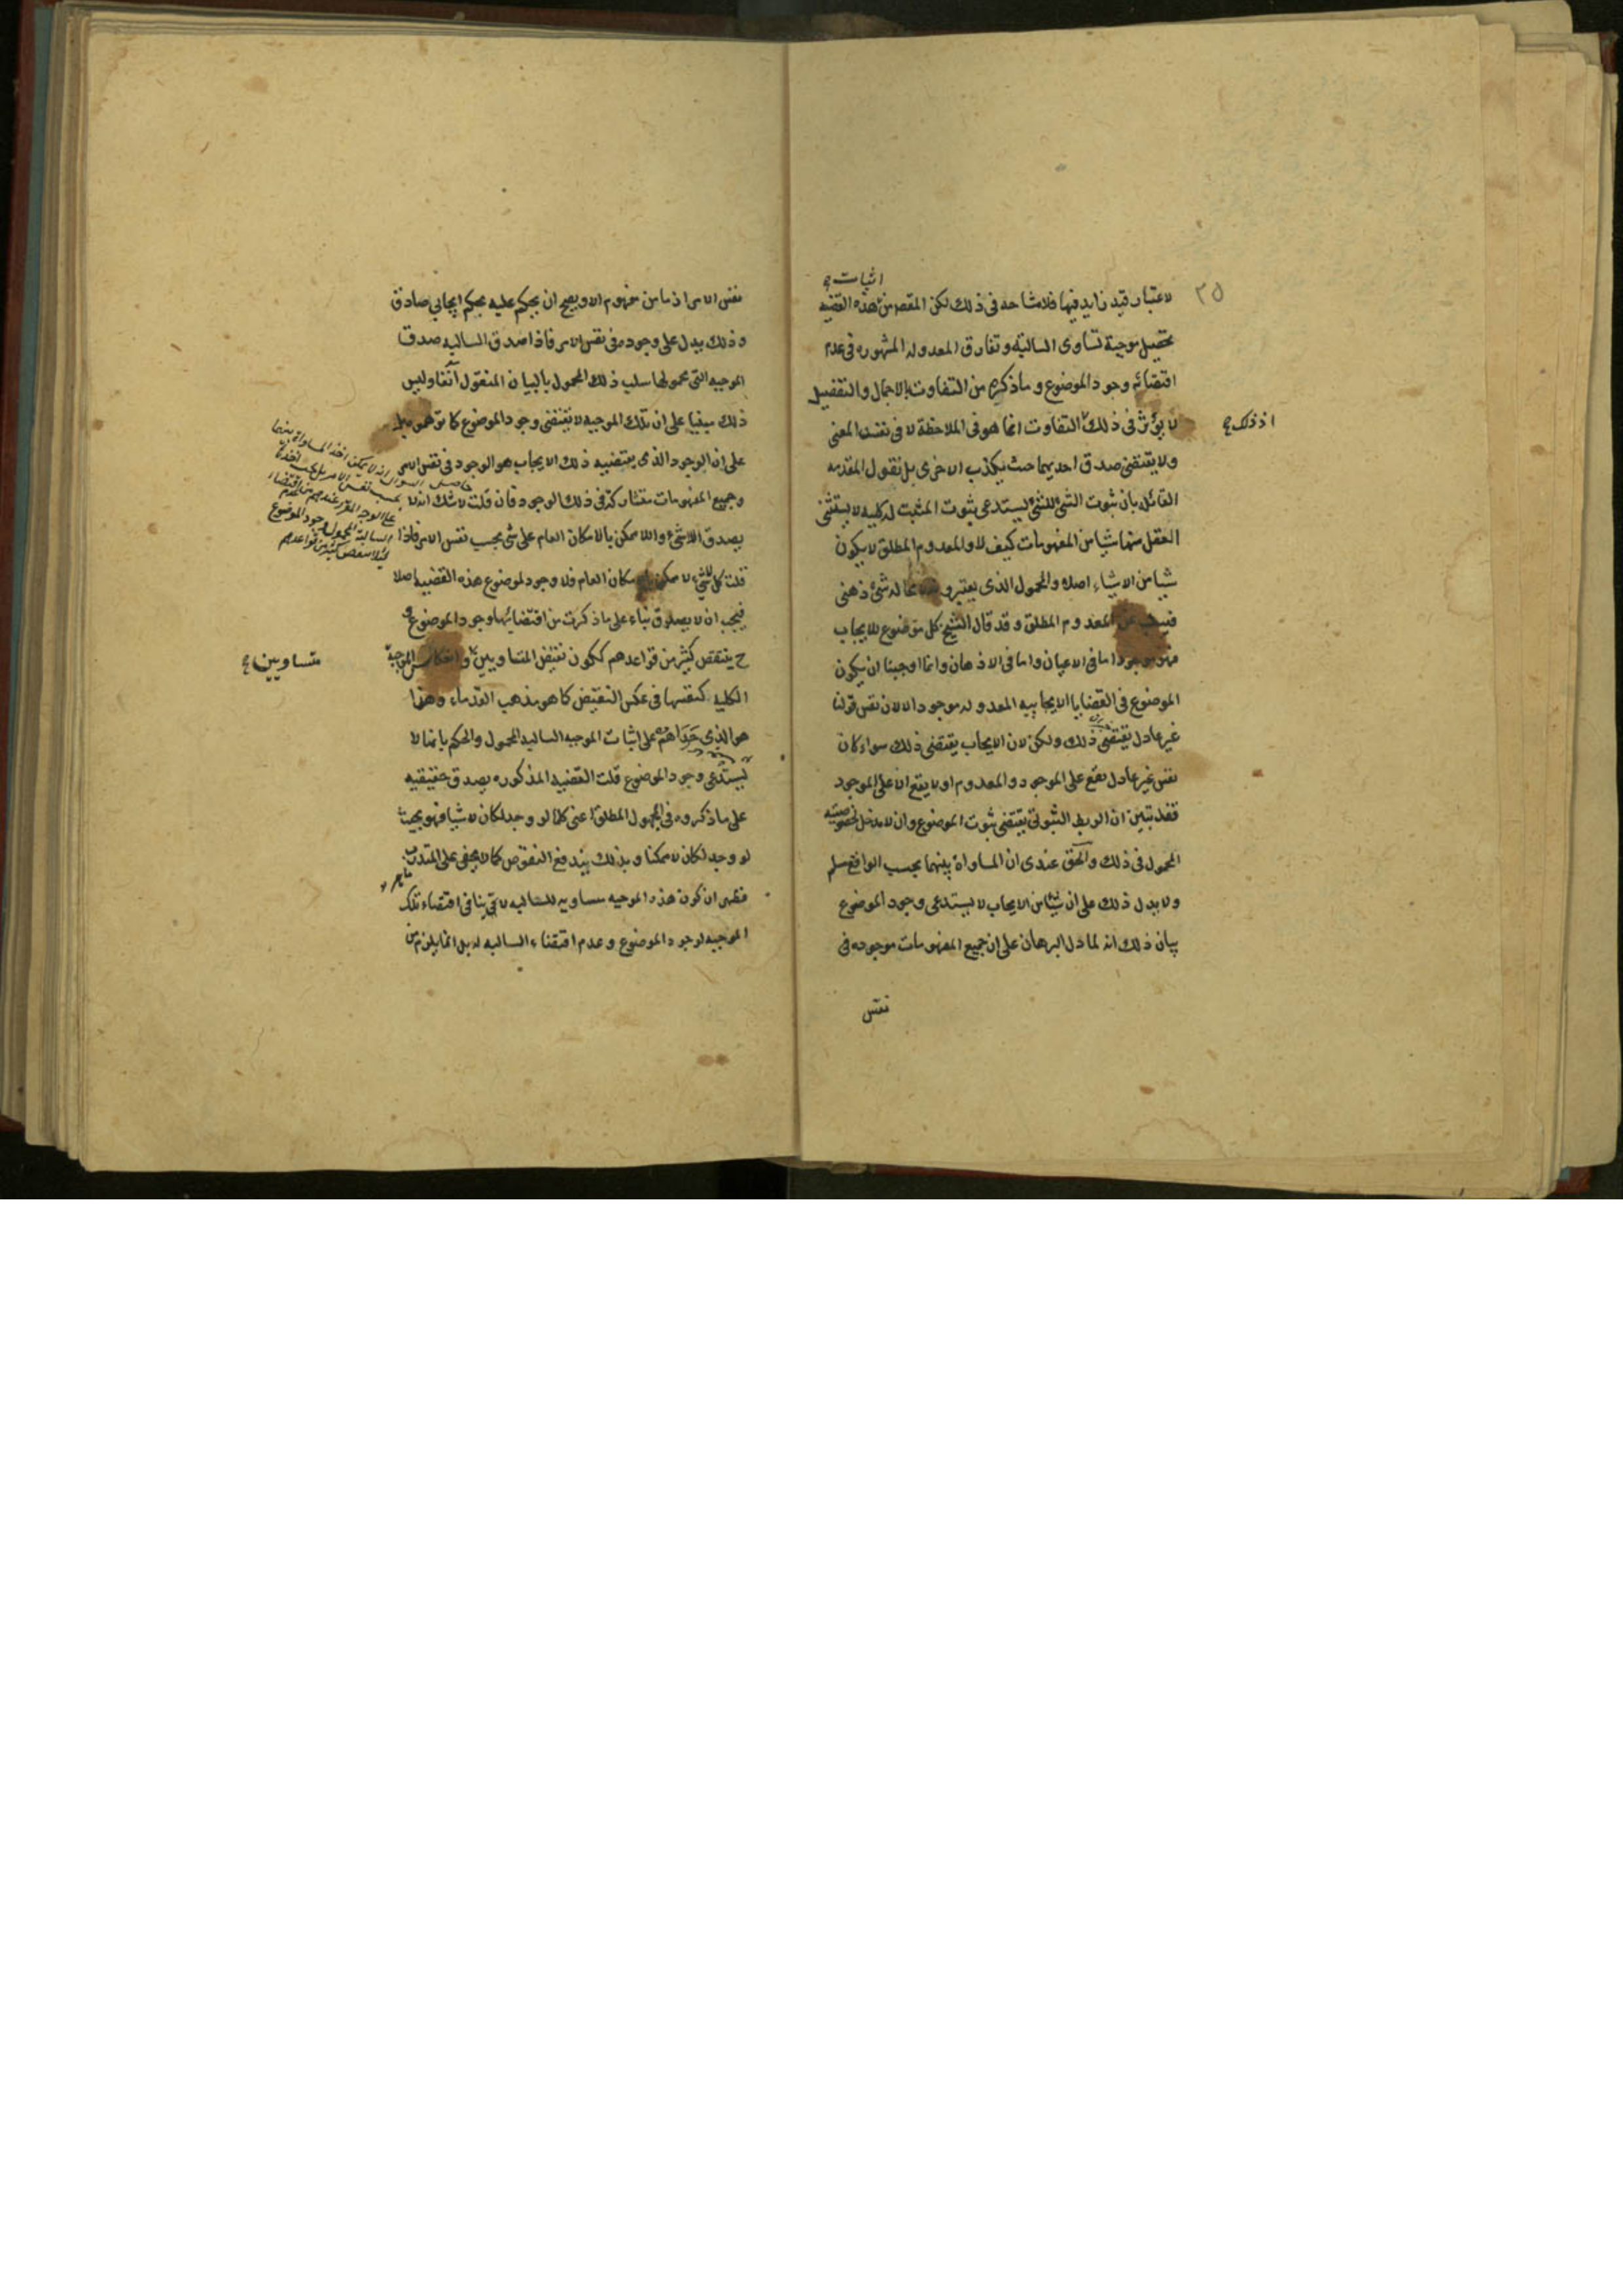 ٣٥
اثبات
لاعتبار قيد زايد فيها فلا مشاحه فى ذلك لكن المقصر من هذه القضيه
تحصيل موجبة تساوى السالبة وتفارق المعدوله المشهوره فى عدم
اقتضائه وجود الموضوع وما ذكره من التفاوت بالاجمال والتفصيل
لا يؤثر فى ذلك التفاوت انما هو فى الملاحظة لا فى نفس المعنى
اذ ذلك
ولا يقتضى صدق احديهما حيث يكذب الاخرى بل نقول المقدمه
القائله بان ثبوت الشئ للشئ يستدعى ثبوت المثبت له كليه لا يستثنى
العقل منها شيا من المفهومات كيف لا والمعدوم المطلق لا يكون
شيا من الاشياء اصلا والمحمول الذى يعتبرو له شئ ذهنى
المعدوم المطلق وقد قال الشيخ كل موضوع للايجاب
فهو موجود اما فى الاعيان واما فى الاذهان وانما اوجبنا ان يكون
الموضوع فى القضايا الايجابيه المعدوله موجودا لا لان نفس قولنا
غير عادل يقتضى ذلك ولكن لان الايجاب يقتضى ذلك سواء كان
نفس غير عادل يقع على الموجود والمعدوم او لا يقع الا على الموجود
فقد تبين ان الربط الثبوتى يقتضى ثبوت الموضوع وان لا مدخل لخصوصيته
المحمول فى ذلك والحق عندى ان المساواة بينهما بحسب الواقع مسلم
ولا يدل ذلك على ان شيا من الايجاب لا يستدعى وجود الموضوع
بيان ذلك انه لما دل البرهان على ان جميع المفهومات موجوده فى
نفس
نفس الامر اذ ما من مفهوم الا ويصح ان يحكم عليه بحكم ايجابي صادق
وذلك يدل على وجوده فى نفس الامر فاذا صدق السالبه صدق
الموجبه التى محمولها سلب ذلك المحمول بالبيان المنقول آنفا وليس
ذلك مبنيا على ان تلك الموجبه لا يقتضى وجود الموضوع كما توهموه بل
على ان الوجود الذى يقتضيه ذلك الايجاب هو الوجود فى نفس الامر
وجميع المفهومات متشاركة فى ذلك الوجود فان قلت لا شك انه لا
يصدق اللاشئ واللاممكن بالامكان العام على شئ بحسب نفس الامر فاذا
قلت كل لاشئ لا ممكن بالامكان العام فلا وجود لموضوع هذه القضيه اصلا
فيجب ان لا يصدق بناء على ما ذكرت من اقتضائها وجود الموضوع و
ح ينتقض كثير من قواعدهم ككون نقيض المتساويين وانعكاس الموجبة
متساويين
الكليه كنفسها فى عكس النقيض كما هو مذهب القدماء وهذا
هو الذى حداهم على اثبات الموجبه السالبه المحمول والحكم بانها لا
يستدعى وجود الموضوع قلت القضيه المذكوره يصدق حقيقيه
على ما ذكروه فى المجهول المطلق اعنى كلما لو وجد لكان لا شيا فهو بحيث
لو وجد لكان لا ممكنا وبذلك يندفع النقوض كما لا يخفى على المتدرب
فظهر ان كون هذه الموجبه مساويه للسالبه لا ينافى اقتضاء تلك
الموجبه لوجود الموضوع وعدم اقتضاء السالبه له بل انما يلزم من
حاصل السوال انه لا يمكن اخذ المساواة بينهما
بحسب نفس الامر بل يجب اخذه
على الوجه المقرر عندهم من عدم اقتضاء
السالبة المحمول وجود الموضوع
لئلا ينتقض كثير من قواعدهم